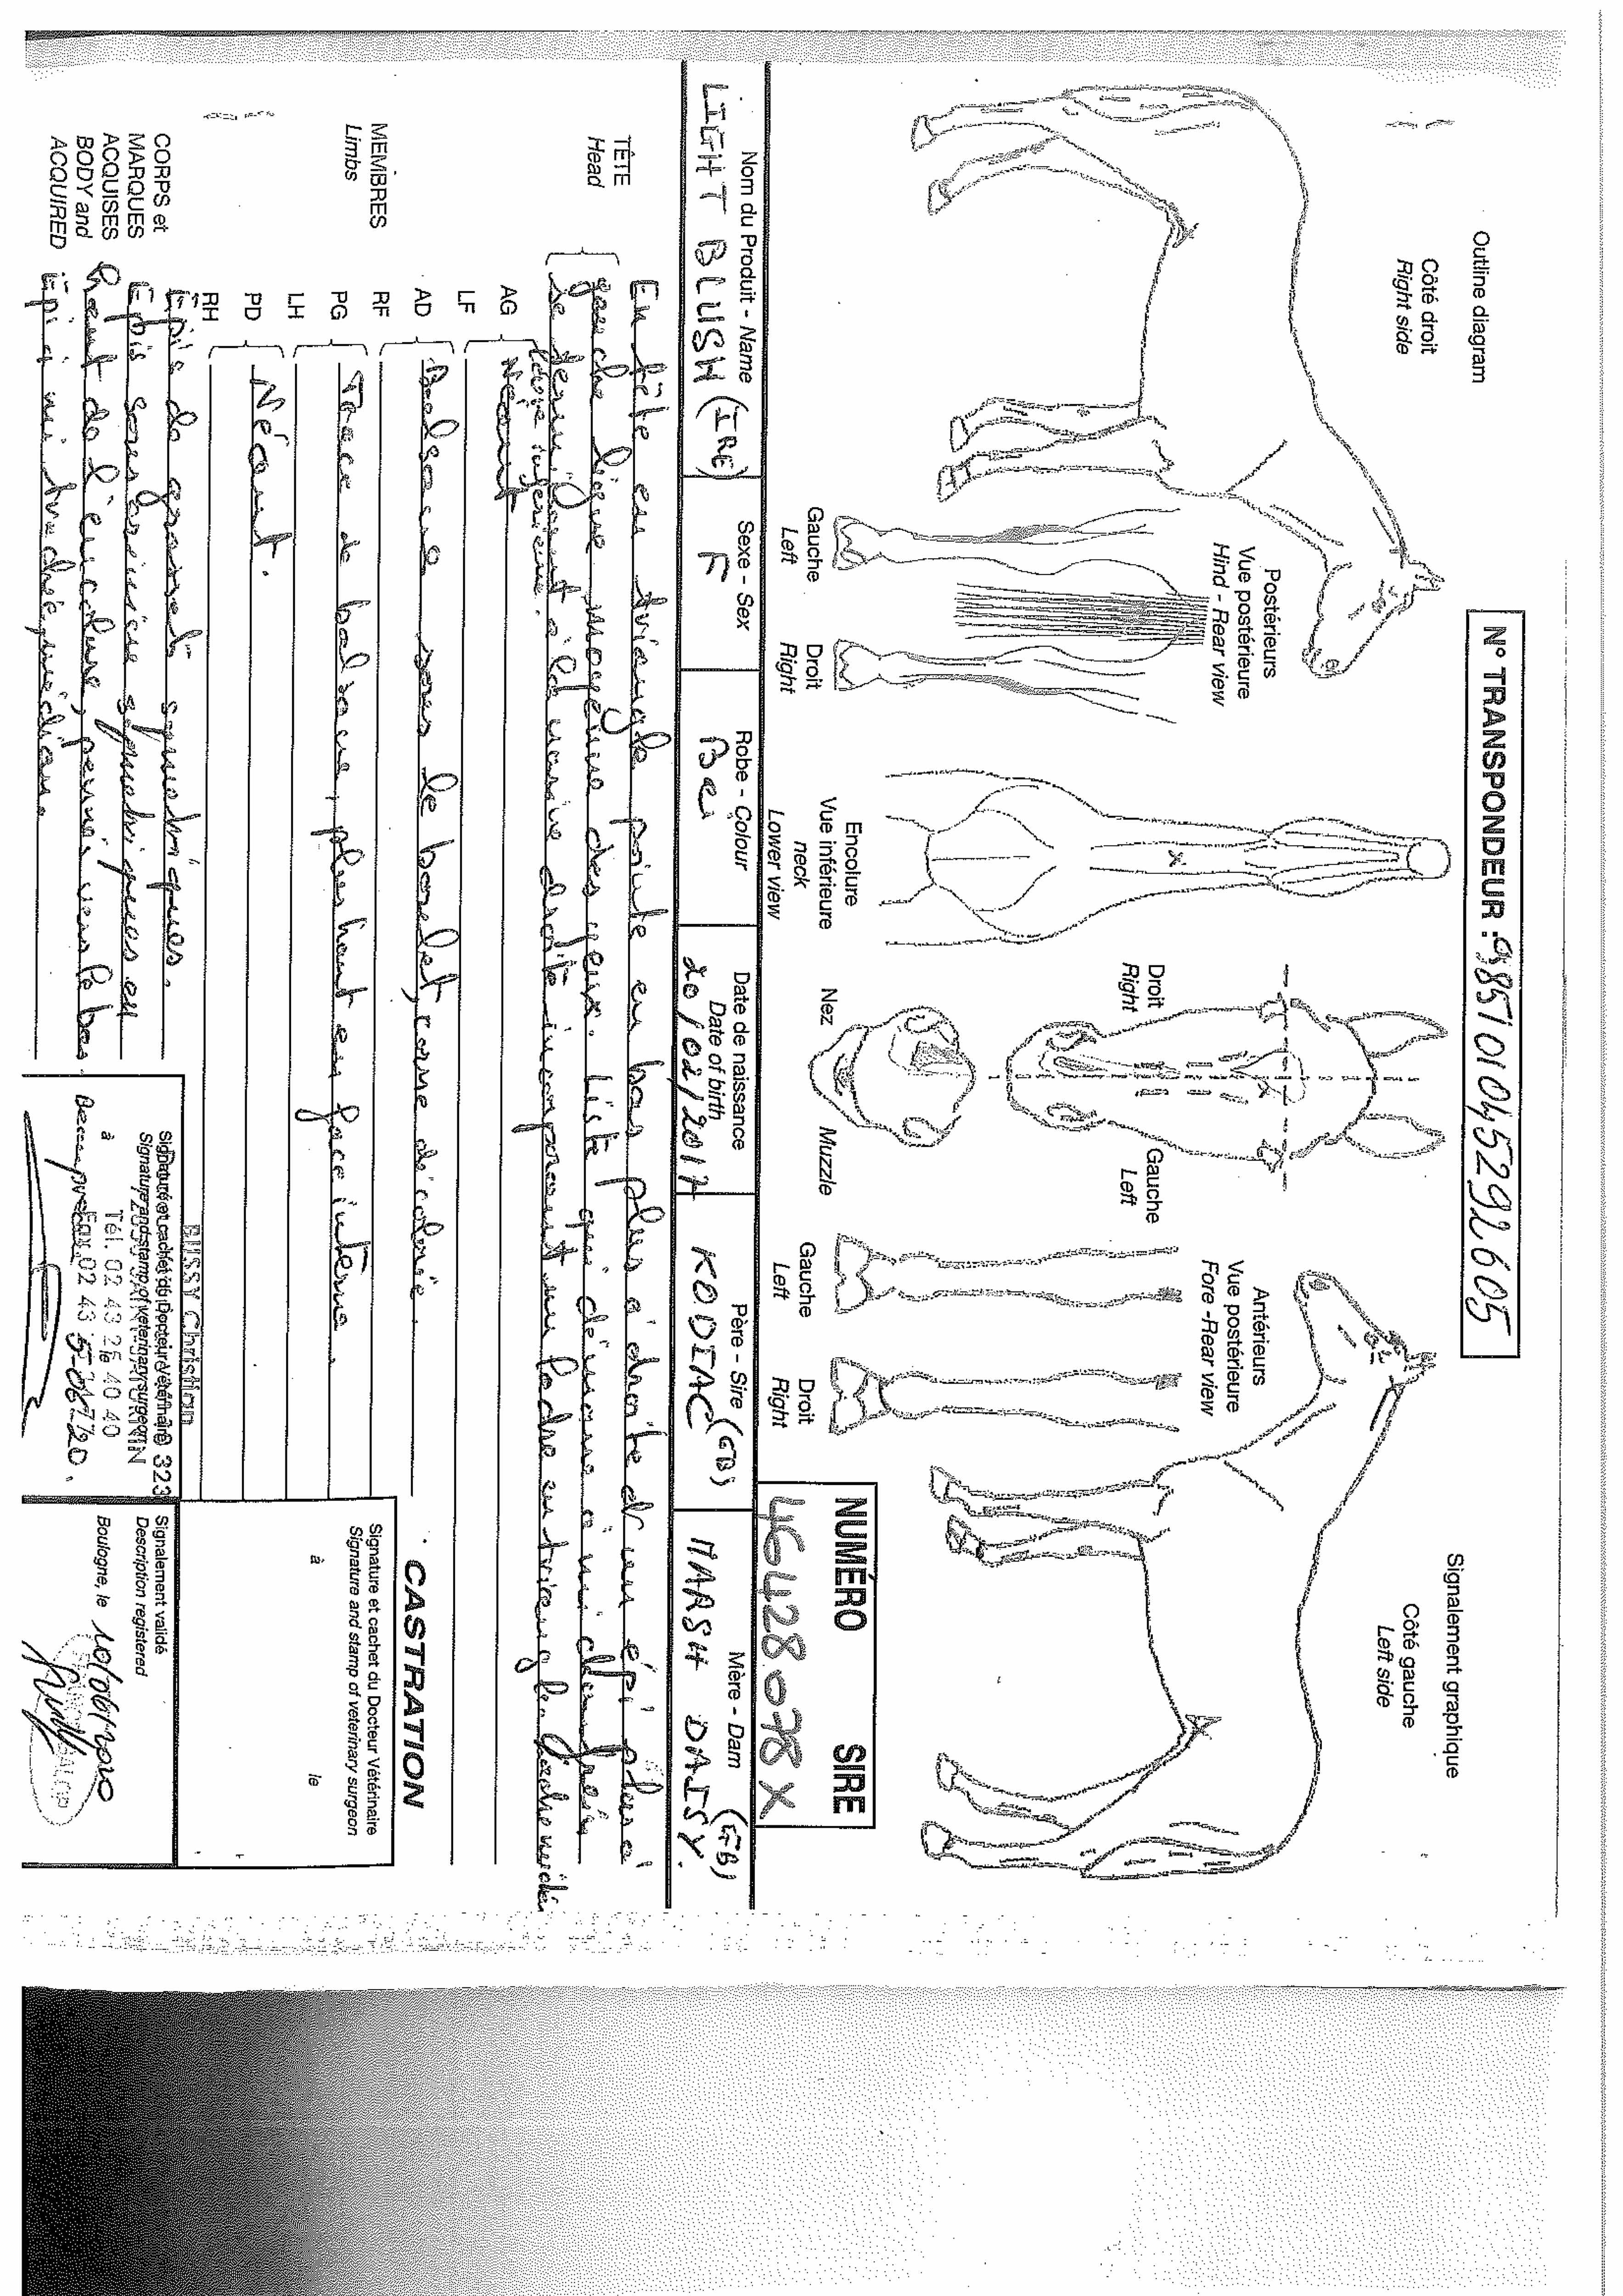 N° TRANSPONDEUR : 985101045292605
Outline diagram
Signalement graphique
Côté droit
Right side
Côté gauche
Left side
Postérieurs
Vue postérieure
Hind - Rear view
Gauche
Left
Droit
Right
Encolure
Vue inférieure
neck
Lower view
Droit
Right
Gauche
Left
Nez
Muzzle
Antérieurs
Vue postérieure
Fore - Rear view
Gauche
Left
Droit
Right
NUMÉRO SIRE
46428078 X
Nom du Produit - Name
LIGHT BLUSH (IRE)
Sexe - Sex
F
Robe - Colour
Bai
Date de naissance
Date of birth
20/02/2017
Père - Sire
KODIAC (GB)
Mère - Dam
MARSH DAISY (GB)
TÊTE
Head
En tête en triangle pointe en bas plus à droite d'un épi plus à
gauche ligne moyenne des yeux. Liste qui démarre à mi chanfrein
se terminant à la narine droite incorporant un ladre en triangle. Ladre médian
lèvre inférieure.
MEMBRES
Limbs
AG
LF
Néant
AD
RF
Balzane sous le bourrelet, corne décolorée.
PG
LH
Trace de balzane, plus haut en face interne.
PD
RH
Néant.
CORPS et
MARQUES
ACQUISES
BODY and
ACQUIRED
Epis de grasset symétriques.
Epis sous crinière symétriques en
haut de l'encolure, pennés vers le bas.
Epi à mi trachée médiane.
BUSSY Christian
Signature et cachet du Docteur Vétérinaire 323
Signature and stamp of veterinary surgeon
Tél. 02 43 25 40 40
à
le
Fax 02 43
CASTRATION
Signature et cachet du Docteur Vétérinaire
Signature and stamp of veterinary surgeon
à le
Signalement validé
Description registered
Boulogne, le 10/06/2020